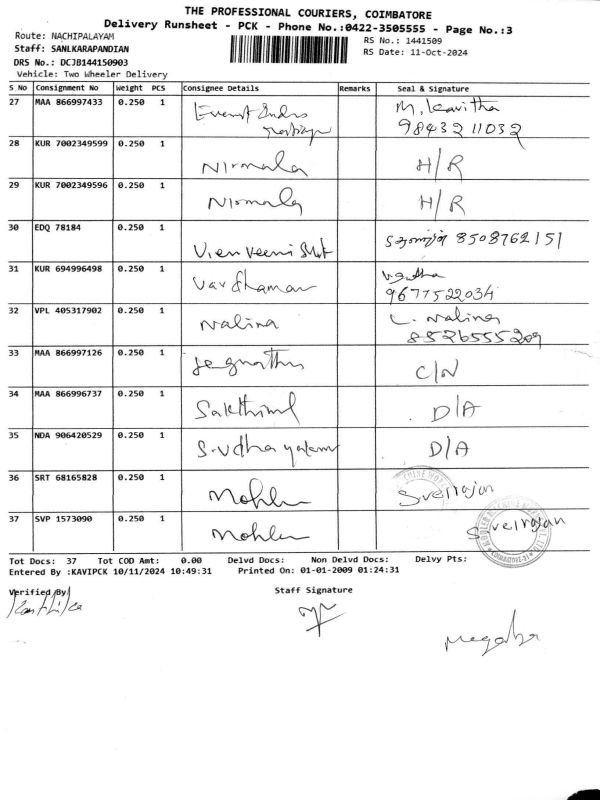 THE PROFESSIONAL COURIERS, COIMBATORE
Delivery Runsheet - PCK - Phone No.:0422-3505555 - Page No.:3
Route: NACHIPALAYAM RS No.: 1441509
Staff: SANLKARAPANDIAN RS Date: 11-Oct-2024
DRS No.: DCJB144150903
Vehicle: Two Wheeler Delivery
S No Consignment No Weight PCS Consignee Details Remarks Seal & Signature
27 MAA 866997433 0.250 1 M. Kavitha
9843211032
28 KUR 7002349599 0.250 1 Nirmala H/R
29 KUR 7002349596 0.250 1 Nirmala H/R
30 EDQ 78184 0.250 1 8508762151
31 KUR 694996498 0.250 1 Vardhaman
9677522034
32 VPL 405317902 0.250 1 Nalina L. Nalina
8526555209
33 MAA 866997126 0.250 1 C/N
34 MAA 866996737 0.250 1 D/A
35 NDA 906420529 0.250 1 D/A
36 SRT 68165828 0.250 1
37 SVP 1573090 0.250 1
Tot Docs: 37 Tot COD Amt: 0.00 Delvd Docs: Non Delvd Docs: Delvy Pts:
Entered By :KAVIPCK 10/11/2024 10:49:31 Printed On: 01-01-2009 01:24:31
Verified By Staff Signature